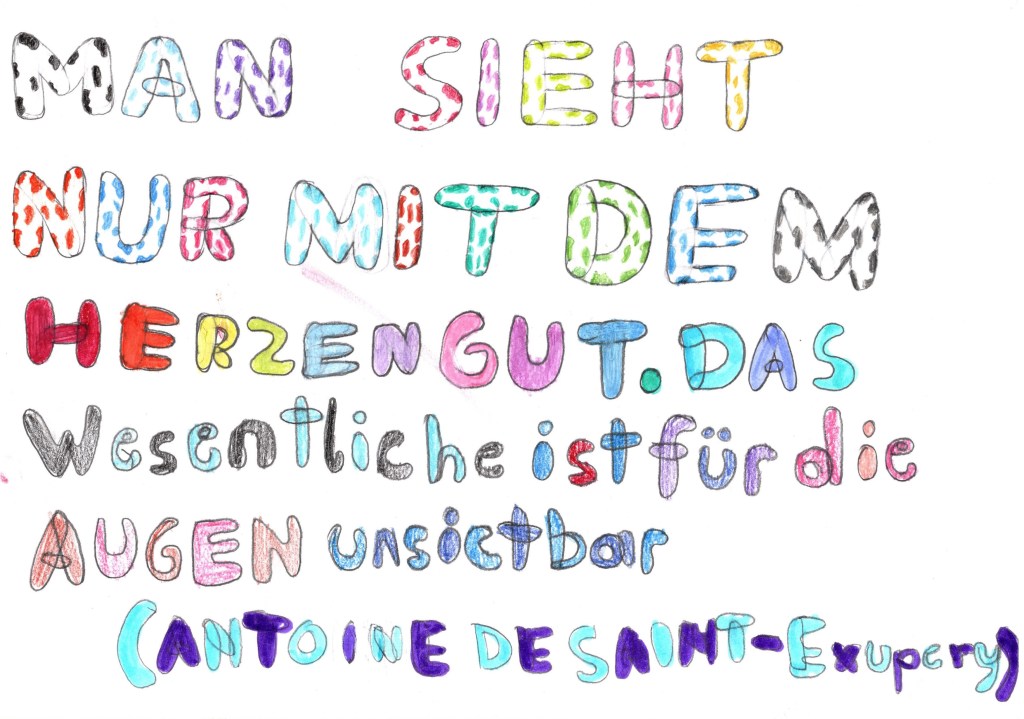 MAN SIEHT
NUR MIT DEM
HERZEN GUT. DAS
Wesentliche ist für die
AUGEN unsictbar
(ANTOINE DE SAINT-Exupery)